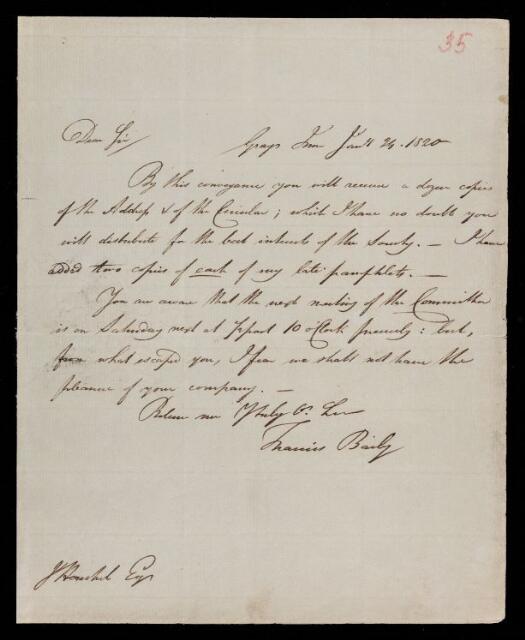 35
Dear Sir
Grays Inn Jany 24. 1820
By this conveyance you will receive a dozen copies
of the Address & of the Circular; which I have no doubt you
will distribute for the best interests of the Society. — I have
added two copies of each of my late pamphlets. —
You are aware that the next meeting of the Committee
is on Saturday next at ½ past 10 o'Clock precisely: but,
from what escaped you, I fear we shall not have the
pleasure of your company. —
Believe me Yrs
Francis Baily
J Herschel Esqr